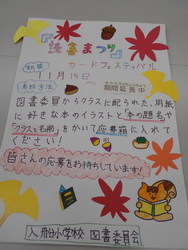 『読書まつり』
カードフェスティバル
期間延長中
図書委員からクラスに配られた、用紙
に好きな本のイラストと「本の題名」や
「クラスと名前」をかいて応募箱に入れて
ください!
皆さんの応募をお待ちしています!
小学校 図書委員会